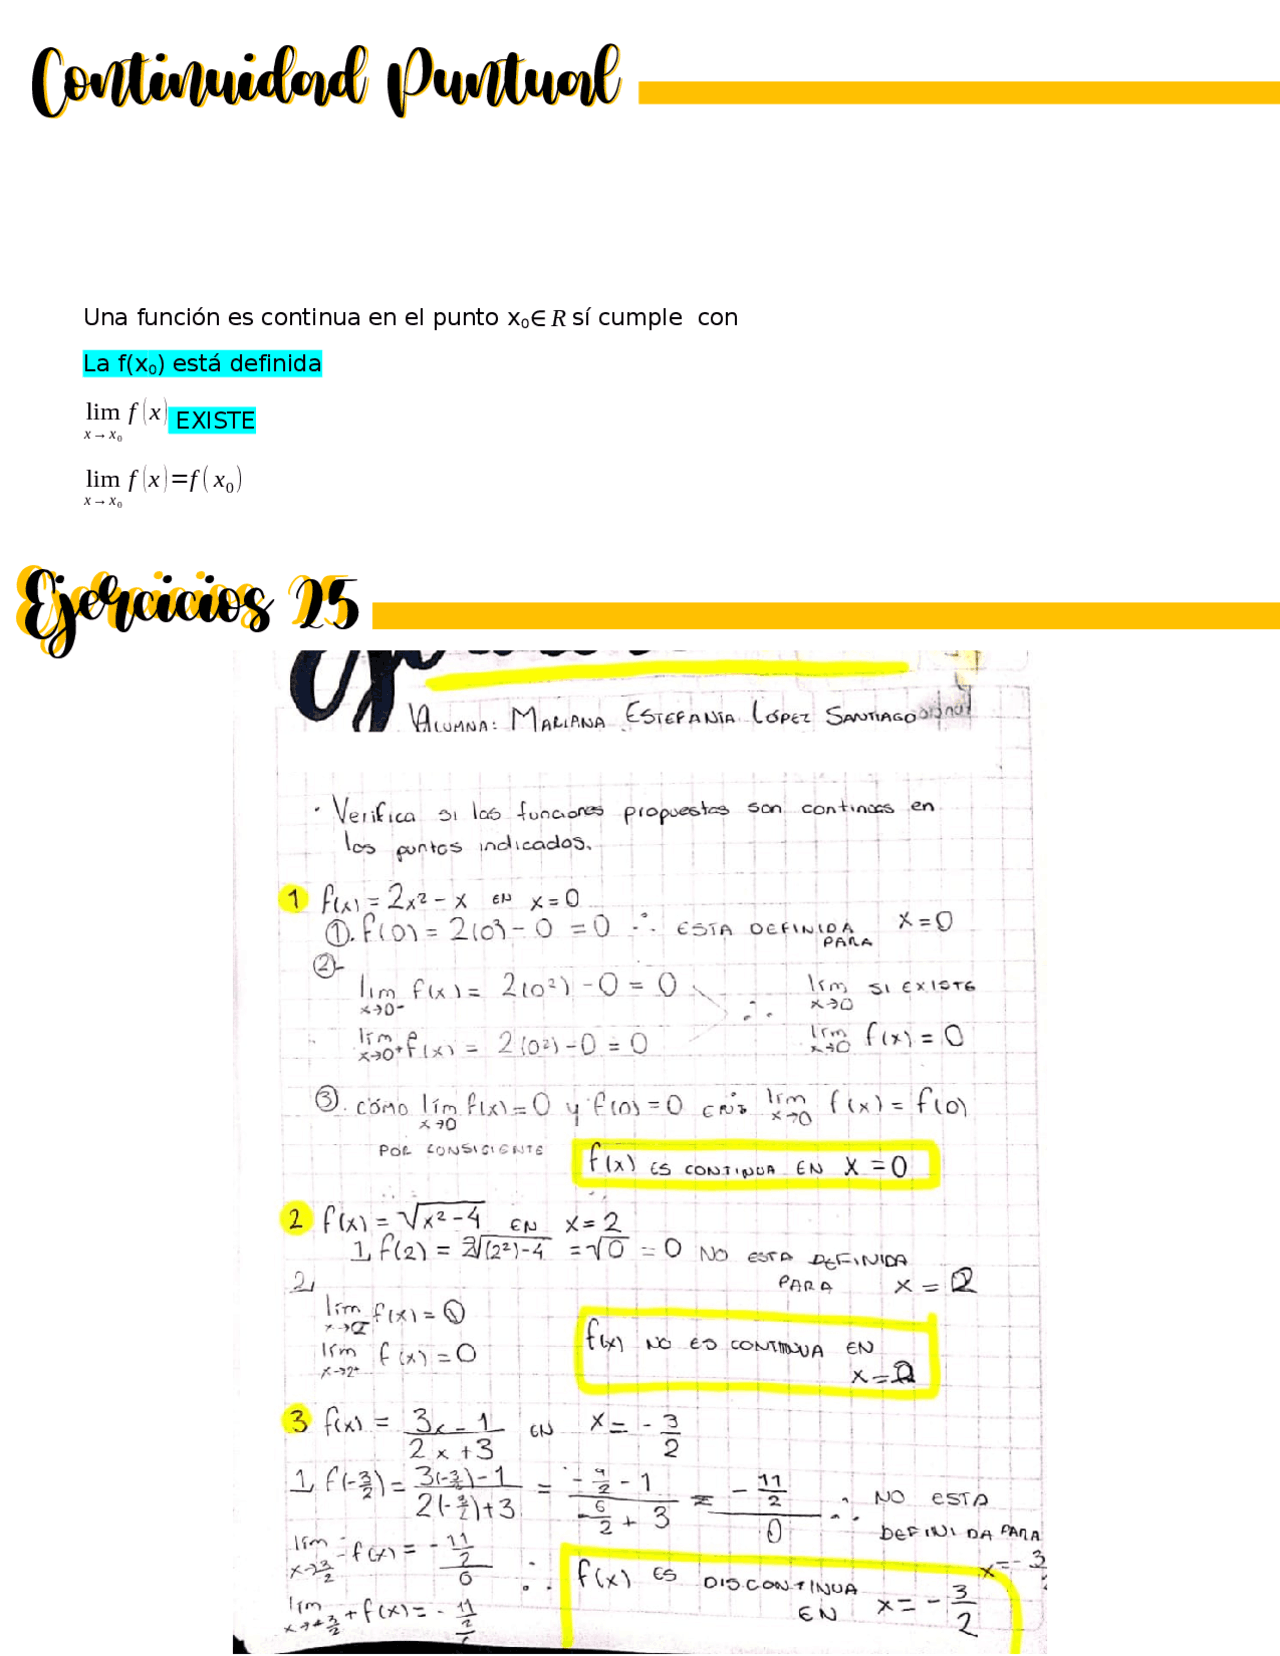 Continuidad Puntual
Una función es continua en el punto x₀∈R sí cumple con
La f(x₀) está definida
lim f(x) EXISTE
x→x₀
lim f(x)=f(x₀)
x→x₀
Ejercicios 25
ALUMNA: MARIANA ESTEFANÍA LÓPEZ SANTIAGO
· Verifica si las funciones propuestas son continuas en
los puntos indicados.
1 f(x) = 2x² - x EN x = 0
①. f(0) = 2(0)² - 0 = 0 ∴ ESTA DEFINIDA PARA x = 0
②-
lim f(x) = 2(0²) - 0 = 0 ∴ lim SI EXISTE
x→0⁻ x→0
lim f(x) = 2(0²) - 0 = 0 lim f(x) = 0
x→0⁺ x→0
③. cómo lim f(x) = 0 y f(0) = 0 lim f(x) = f(0)
x→0 x→0
POR CONSIGIENTE f(x) ES CONTINUA EN x = 0
2 f(x) = √x² - 4 EN x = 2
1, f(2) = √(2²) - 4 = √0 = 0 NO ESTA DEFINIDA
PARA x = 2
2,
lim f(x) = 0
x→2⁻
lim f(x) = 0
x→2⁺
f(x) NO ES CONTINUA EN
x = 2
3 f(x) = 3x - 1 / 2x + 3 EN x = - 3/2
1, f(-3/2) = 3(-3/2) - 1 / 2(-3/2) + 3 = - 9/2 - 1 / - 6/2 + 3 = - 11/2 / 0 ∴ NO ESTA
DEFINIDA PARA
x = - 3
lim f(x) = - 11/2 / 0 ∴ f(x) ES DISCONTINUA
x→3/2⁻ EN x = - 3/2
lim f(x) = - 11/2
x→-3/2⁺